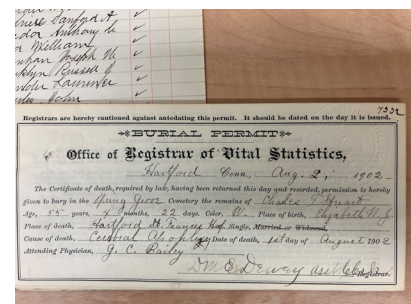 Sanford A
Anthony
William
Joseph W
Russell J
John
7332
Registrars are hereby cautioned against antedating this permit. It should be dated on the day it is issued.
BURIAL PERMIT
Office of Registrar of Vital Statistics,
Hartford Conn., Aug. 2, 1902
The Certificate of death, required by law, having been returned this day and recorded, permission is hereby
given to bury in the Spring Grove Cemetery the remains of Charles T Stuart
Age, 55 years, 4 months, 22 days. Color, W. Place of birth, Elizabeth N. J.
Place of death, Hartford St. Francis Hosp. Single, Married or Widowed,
Cause of death, Cerebral Apoplexy Date of death, 1st day of August 1902
Attending Physician, J. C. Bailey
Dewey asst Registrar.